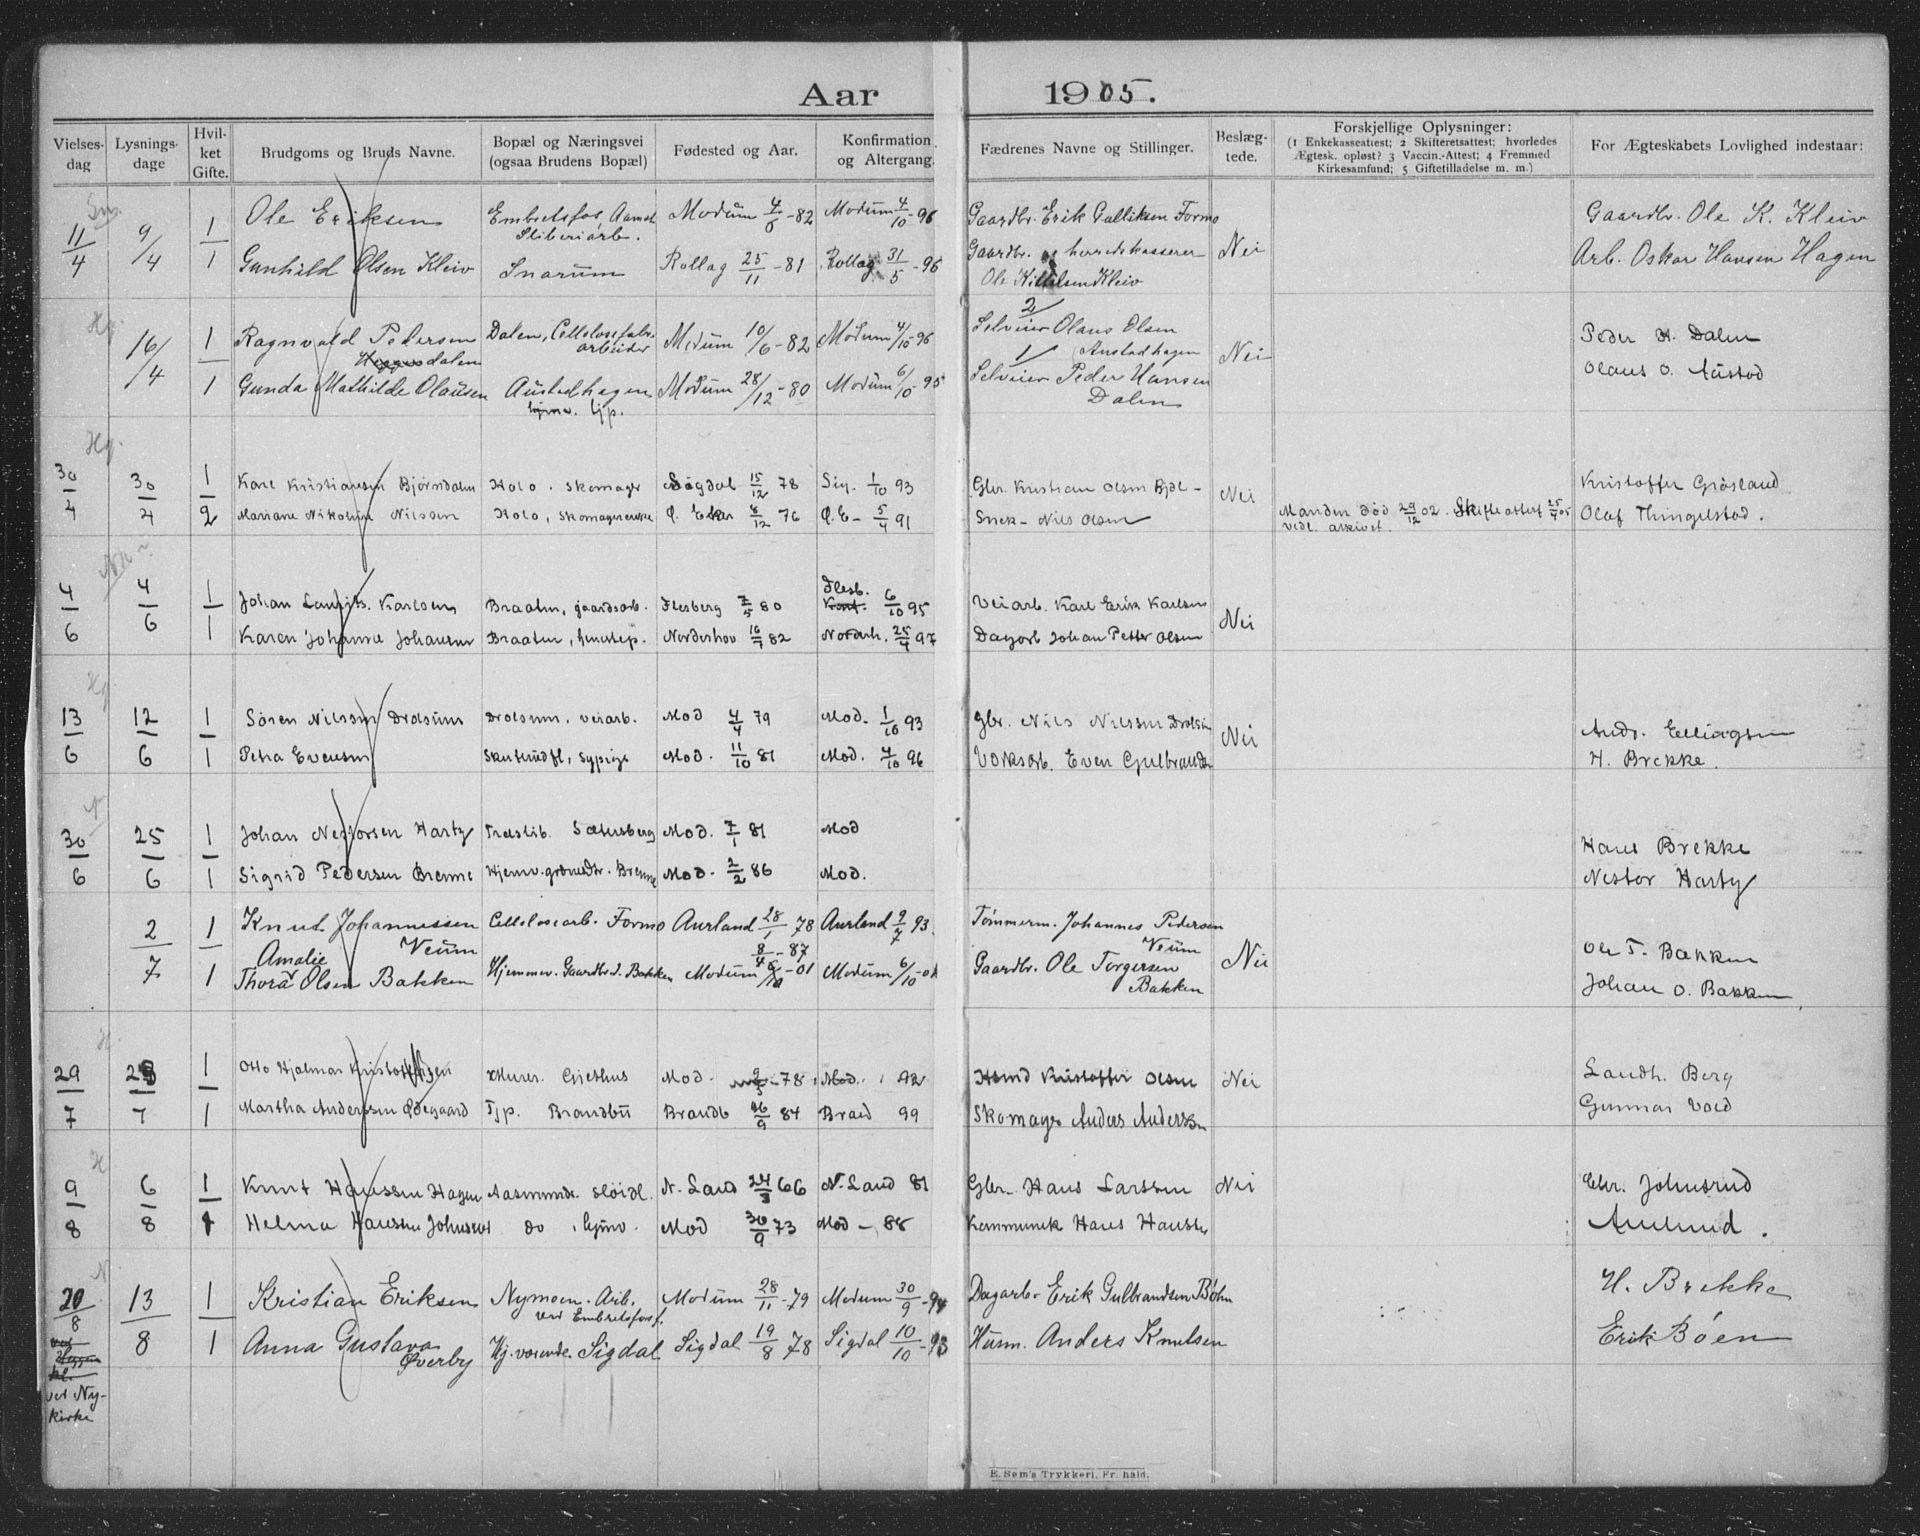 Aar 1905.
Vielses-dag Lysnings-dage Hvil-ket Gifte. Brudgoms og Bruds Navne. Bopæl og Næringsvei (ogsaa Brudens Bopæl) Fødested og Aar. Konfirmation og Altergang. Fædrenes Navne og Stillinger. Beslæg-tede. Forskjellige Oplysninger: (1 Enkekasseattest; 2 Skifteretsattest; hvorledes Ægtesk. opløst? 3 Vaccin.-Attest; 4 Fremmed Kirkesamfund; 5 Giftetilladelse m. m.) For Ægteskabets Lovlighed indestaar:
Sn.
11/4 9/4 1 Ole Eriksen Embretsfos Aamot Sliberiarb. Modum 4/6-82 Modum 4/10-96 Gaardbr. Erik Gulliksen Formo Nei Gaardbr. Ole K. Kleiv
1 Gunhild Olsen Kleiv Snarum Rollag 25/11-81 Rollag 31/5-96 Gaardbr. og herredskasserer Ole Kittilsen Kleiv Arb. Oskar Hansen Hagen
Hg.
16/4 1 Ragnvald Pedersen dalen Dalen, Cellulosefabr. arbeider Modum 10/6-82 Modum 4/10-96 2/ Selveier Olaus Olsen Austadhagen Nei Peder H. Dalen
1 Gunda Mathilde Olausen Austadhagen hjemv. tjp. Modum 28/12-80 Modum 6/10-95 1/ Selveier Peder Hansen Dalen Olaus O. Austad
Hg.
30/4 30/4 1 Karl Kristiansen Bjørndalen Kolo. skomager Sigdal 15/12 78 Sig. 1/10 93 Gbr. Kristian Olsen Bjdl- Nei Kristoffer Grøsland
2 Mariane Nikoline Nilssen Kolo, skomagerenke Ø. Eker 8/12 76 Ø. E- 5/4 91 Snek- Nils Olsen Manden død 29/12 02. Skifteattest 25/4 05 vedl. arkivet. Olaf Thingelstad.
4/6 4/6 1 Johan Lauritz Karlsen Braaten, gaardsarb. Flesberg 7/5 80 Flesb. 6/10 95 Veiarb. Karl Erik Karlsen Nei
1 Karen Johanne Johansen Braaten, Norderhov 16/7 82 Norderh. 25/4 97 Dagarb Johan Petter Olsen
Hg
13/6 12/6 1 Søren Nilssen Drolsum Drolsum, veiarb. Mod 4/4 79 Mod. 1/10 93 Gbr. Nils Nilssen Drolsum Nei Andr. Elliagsen
1 Petra Evensen Skutrudfl, sypige Mod. 11/10 81 Mod. 4/10 96 Verksarb. Even Gulbrands. H. Brekke.
30/6 25/6 1 Johan Nestorsen Hartz Træslib. Sætersberg Mod. 7/1 81 Mod Hans Brekke
1 Sigrid Pedersen Brenne Hjemv. grdmdtr. Brenne Mod. 2/2 86 Mod. Nestor Hartz
2/7 1 Knut Johannessen Veum Cellulosearb. Formo Aurland 28/1 78 Aurland 9/7 93. Tømmerm. Johannes Pedersen Veum Nei Ole T. Bakken
1 Thora Amalie Olsen Bakken Hjemmev. Gaardbrd. Bakken Modum 8/4-87 Modum 6/10-01 Gaardbr. Ole Torgersen Bakken Johan O. Bakken,
H.
29/7 1 Otto Hjalmar Kristoffersen Murer. Gjethus Mod. 78 Mod. 92 Kristoffer Olsen Nei Sandh. Berg
7 1 Martha Anderssen Ødegaard Tjp. Brandbu Brandb 26/9 84 Brand 99 Skomager Anders Anderssen Gunnar Vold
H
9/8 6/8 1 Knut Hanssen Hagen Aasmundr. sløidl. N. Land 24/3 66 N. Land 81 Gbr. Hans Larssen Nei Chr. Johnsrud
1 Helma Hanssen Johnsrud do, hjmv. Mod 30/9 73 Mod - 88 Kommunek Hans Hanssen Amlund.
N
20/8 13/8 1 Kristian Eriksen Nymoen. Arb. ved Embretsfoss f. Modum 28/11-79 Modum 30/9-94 Dagarb. Erik Gulbrandsen Bøhn H. Brekke
1 Anna Gustava Øverby Hj. værende. Sigdal Sigdal 19/8 78 Sigdal 10/10-93 Husm. Anders Knutsen Erik Bøen
ved Heggen kl.
ved Ny-
kirke
E. Sem's Trykkeri, Fr. hald.